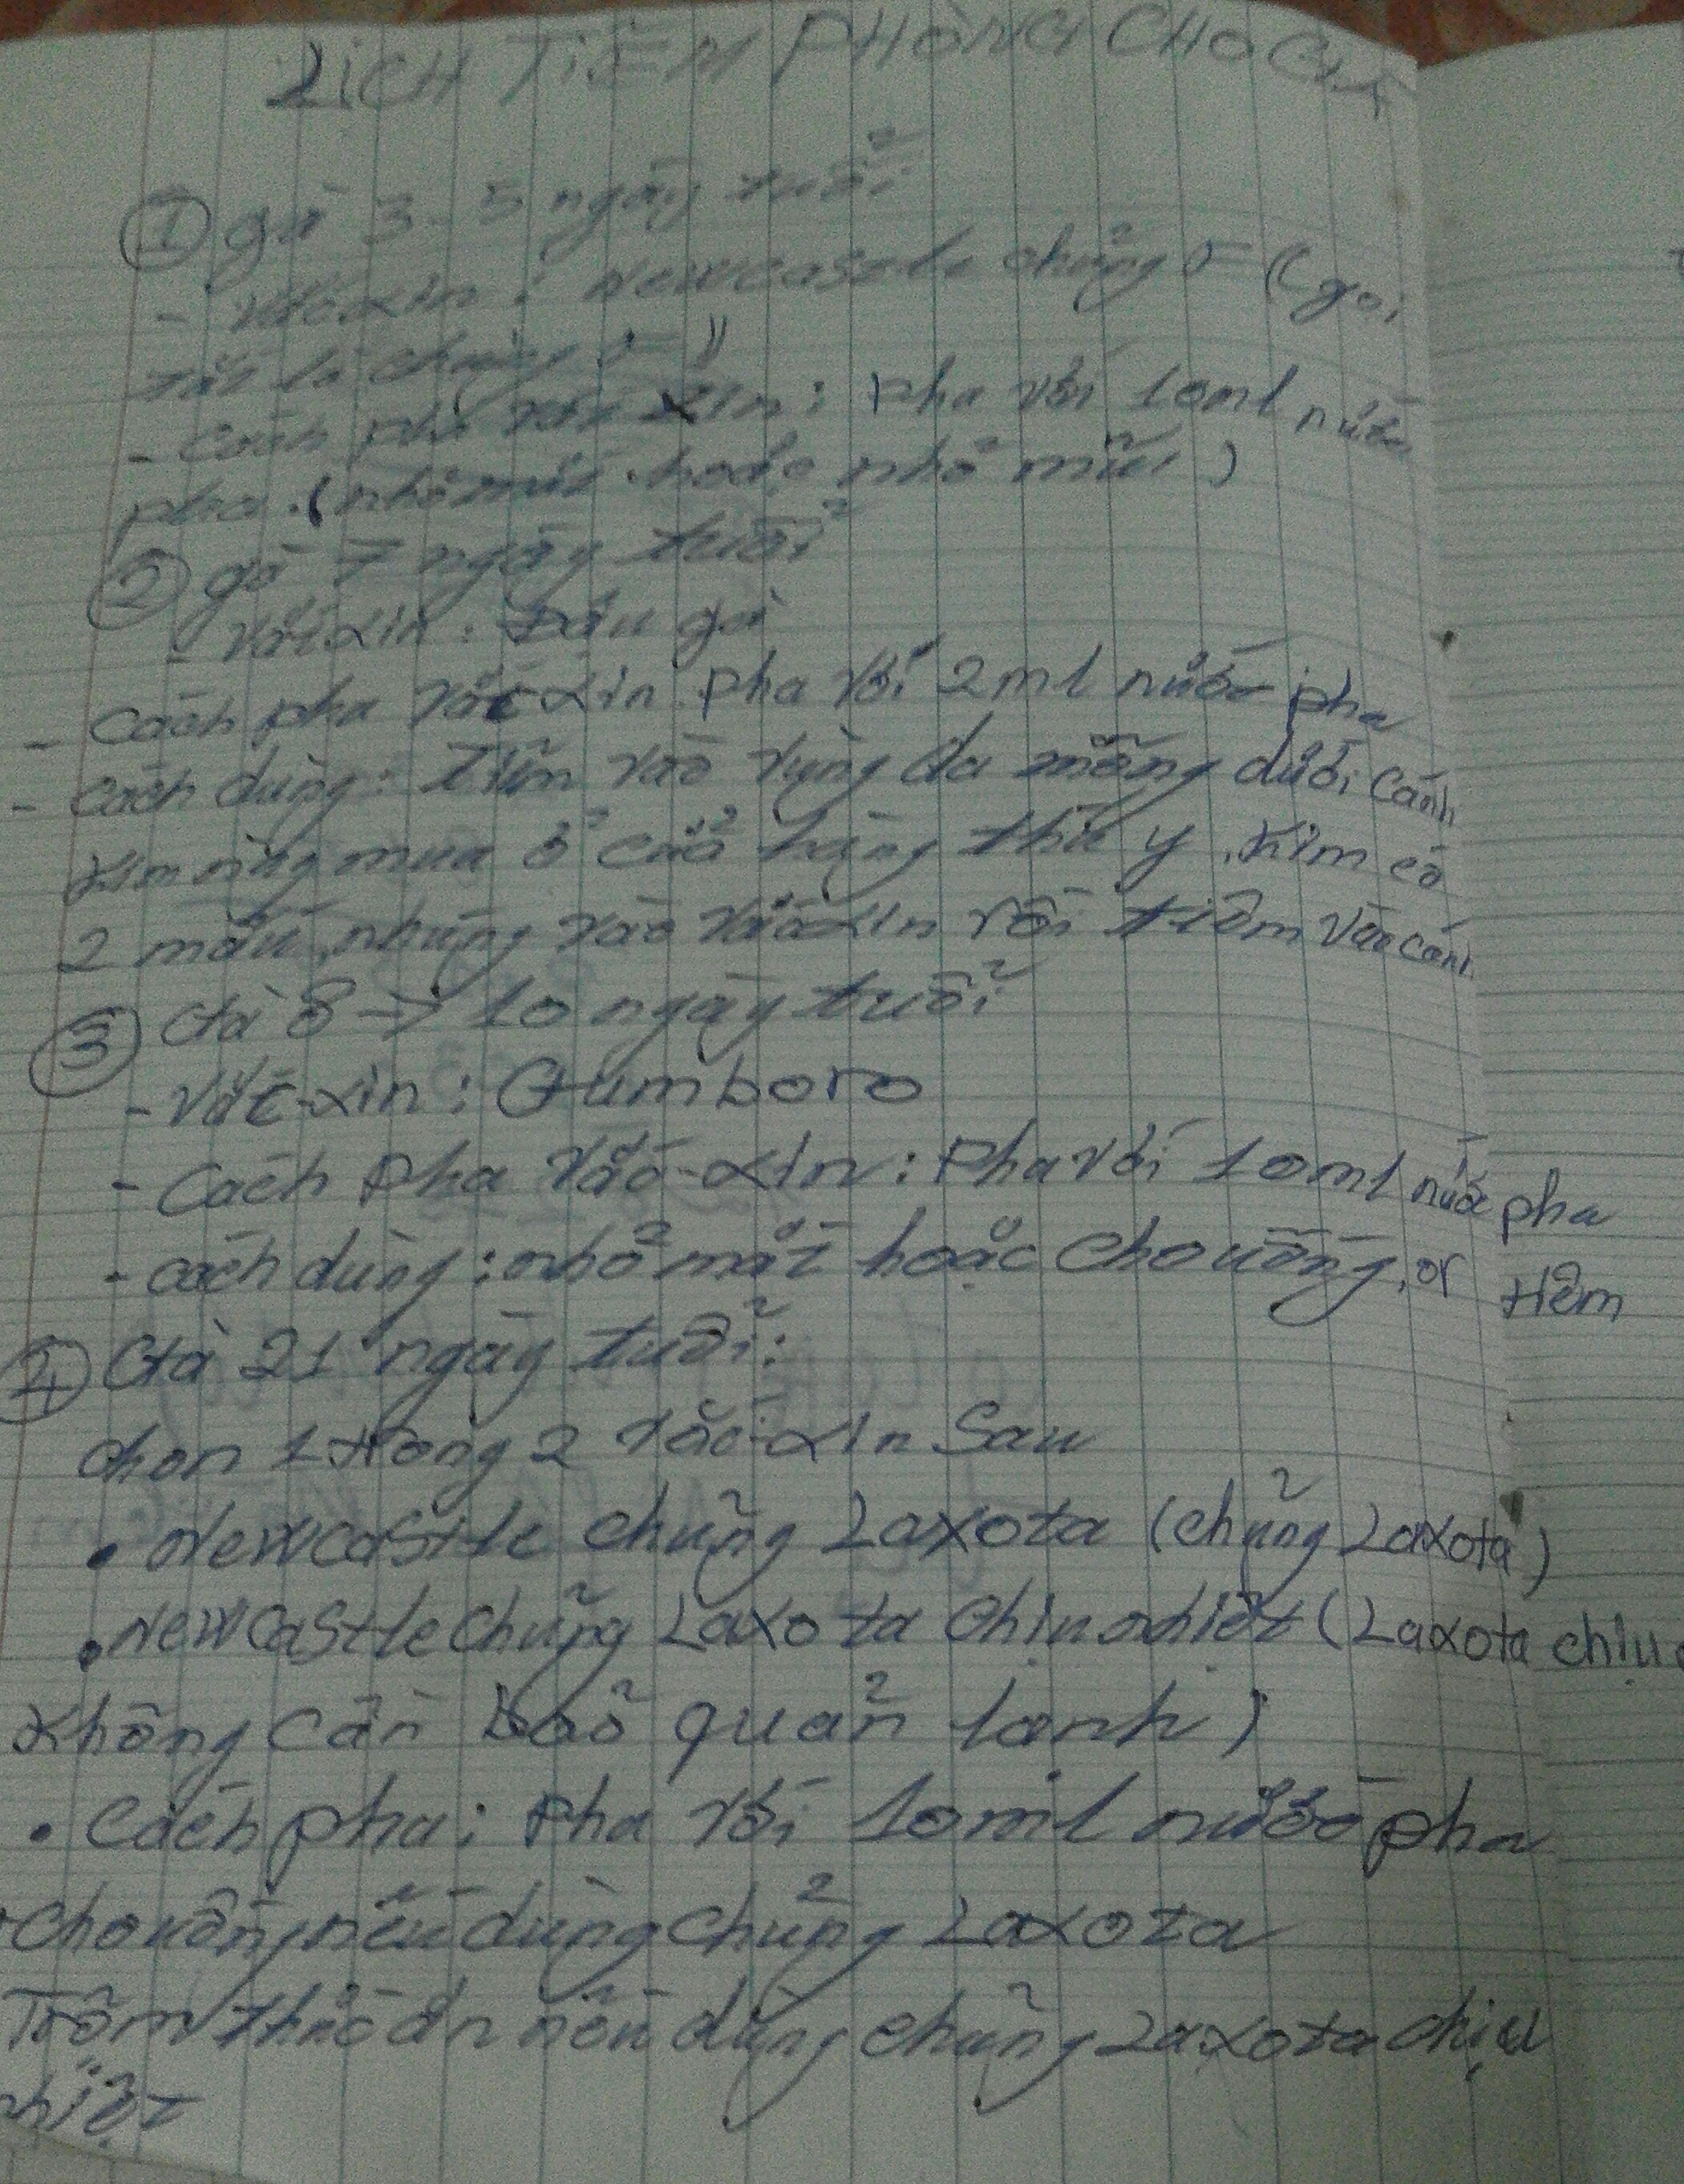 LỊCH TIÊM PHÒNG CHO GÀ
① gà 3-5 ngày tuổi
- Vắc xin: Newcastle chủng F (gọi
tắt là chủng F)
- Cách pha vắc xin: pha với 10ml nước
pha. (nhỏ mắt hoặc nhỏ mũi)
② gà 7 ngày tuổi
- Vắc xin: Đậu gà
- Cách pha vắc xin: pha với 2ml nước pha
- Cách dùng: Tiêm vào vùng da mỏng dưới cánh
Kim riêng mua ở cửa hàng thú y, Kim có
2 mấu, nhúng vào vắc xin rồi tiêm vào cánh
③ Gà 8 → 10 ngày tuổi
- Vắc-xin: Gumboro
- Cách pha vắc-xin: Pha với 10ml nước pha
- cách dùng: nhỏ mắt hoặc cho uống, or tiêm
④ Gà 21 ngày tuổi:
chọn 1 trong 2 vắc-xin Sau
• Newcastle chủng Laxota (chủng Laxota)
• Newcastle chủng Laxota chịu nhiệt (Laxota chịu
Không cần bảo quản lạnh)
• Cách pha: Pha với 10ml nước pha
Cho uống nếu dùng chủng Laxota
Trộn thức ăn nếu dùng chủng Laxota chịu
nhiệt